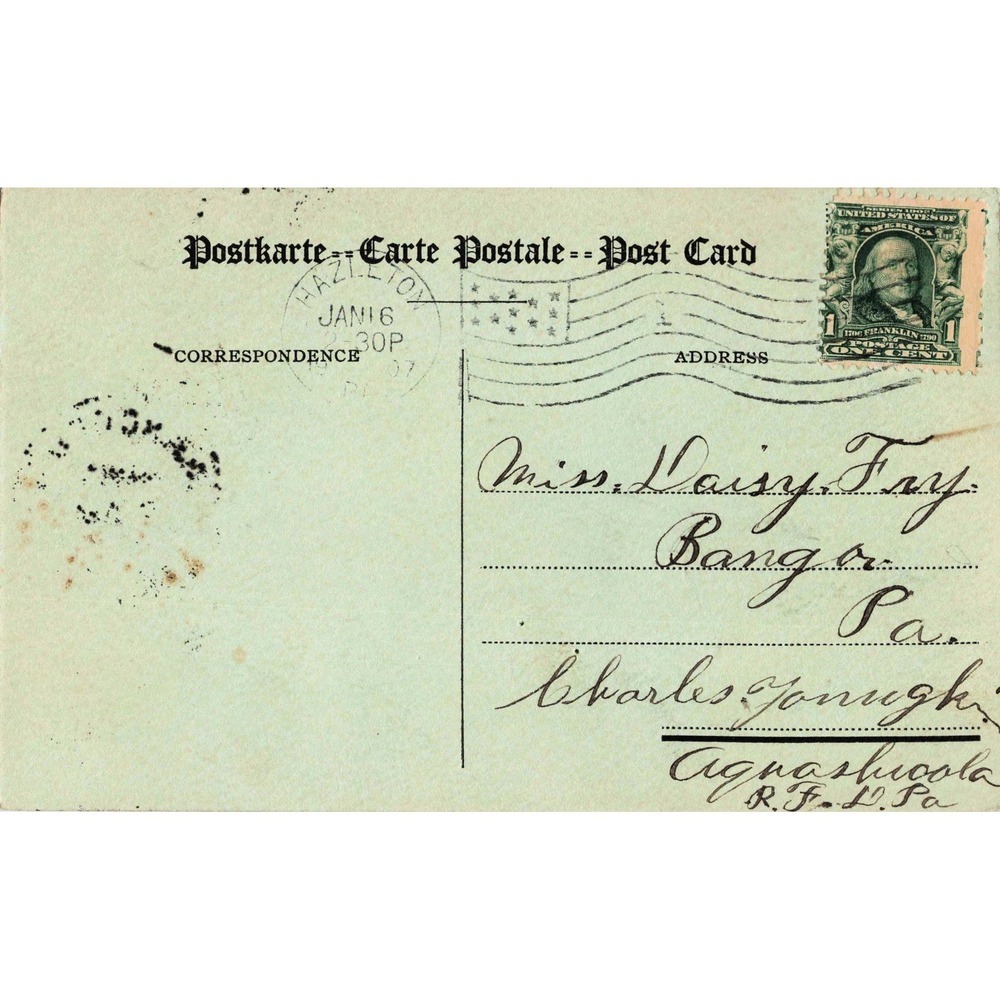 Postkarte--Carte Postale--Post Card
SERIES 1902
UNITED STATES OF
AMERICA
1706 FRANKLIN 1790
1 1
POSTAGE
ONE CENT
HAZLETON
JAN 16
-30P
07
PA
1
CORRESPONDENCE
ADDRESS
Miss. Daisy. Fry.
Bangor.
Pa.
Charles
Aquashicola
R. F. D. Pa